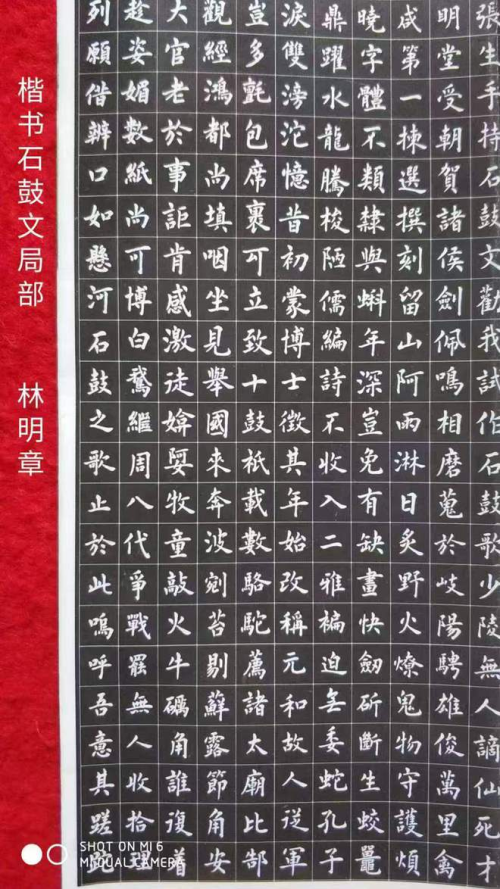 楷书石鼓文局部 林明章
張生手持石鼓文勸我試作石鼓歌少陵無人謫仙死才
明堂受朝賀諸侯劍佩鳴相磨蒐於岐陽騁雄俊萬里禽
成第一揀選撰刻留山阿雨淋日炙野火燎鬼物守護煩
曉字體不類隸與蝌年深豈免有缺畫快劒斫斷生蛟鼉
鼎躍水龍騰梭陋儒編詩不收入二雅褊迫无委蛇孔子
淚雙滂沱憶昔初蒙博士徵其年始改稱元和故人從軍
豈多氈包席裹可立致十鼓祇載數駱駝薦諸太廟比郜
觀經鴻都尚填咽坐見舉國來奔波剜苔剔蘚露節角安
大官老於事詎肯感激徒媕娿牧童敲火牛礪角誰復着
趁姿媚數紙尚可博白鵞繼周八代爭戰罷無人收拾理
列願借辯口如懸河石鼓之歌止於此嗚呼吾意其蹉
SHOT ON MI 6
MI DUAL CAMERA